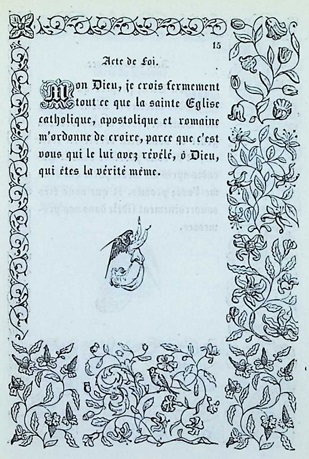 15
Acte de Foi.
Mon Dieu, je crois fermement
tout ce que la sainte Eglise
catholique, apostolique et romaine
m'ordonne de croire, parce que c'est
vous qui le lui avez révélé, ô Dieu,
qui êtes la vérité même.